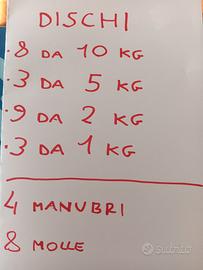 DISCHI
·8 DA 10 KG
·3 DA 5 KG
·9 DA 2 KG
·3 DA 1 KG
4 MANUBRI
8 MOLLE
subito